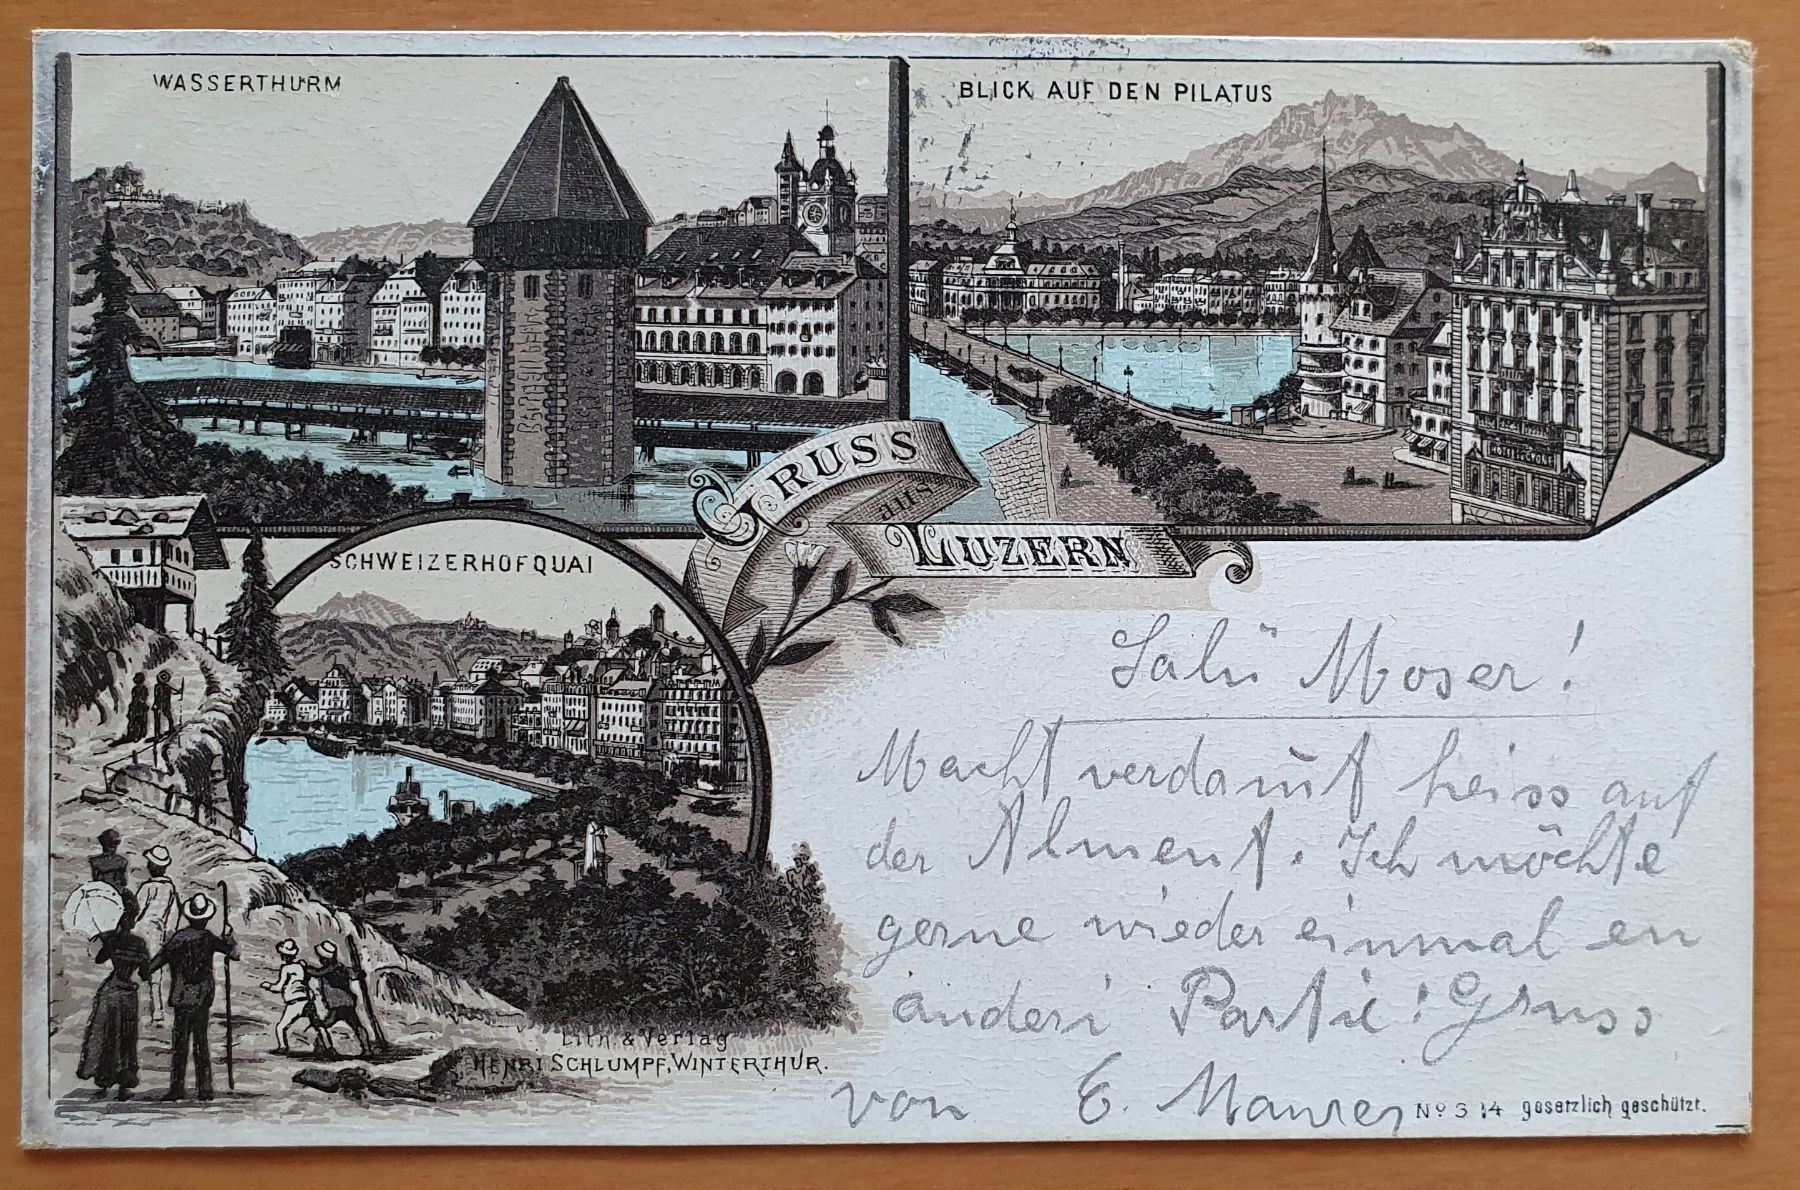 WASSERTHURM
BLICK AUF DEN PILATUS
GRUSS
aus
LUZERN
SCHWEIZERHOFQUAI
Salü Moser!
Macht verdamt heiss auf
der Alment. Ich möchte
gerne wieder einmal en
anderi Partie! Gruss
von E. Maurer
Lith. & Verlag
HENRI SCHLUMPF, WINTERTHUR.
No 314 gesetzlich geschützt.